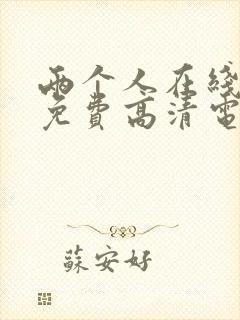 两个人在线
免费高清電
蘇安好